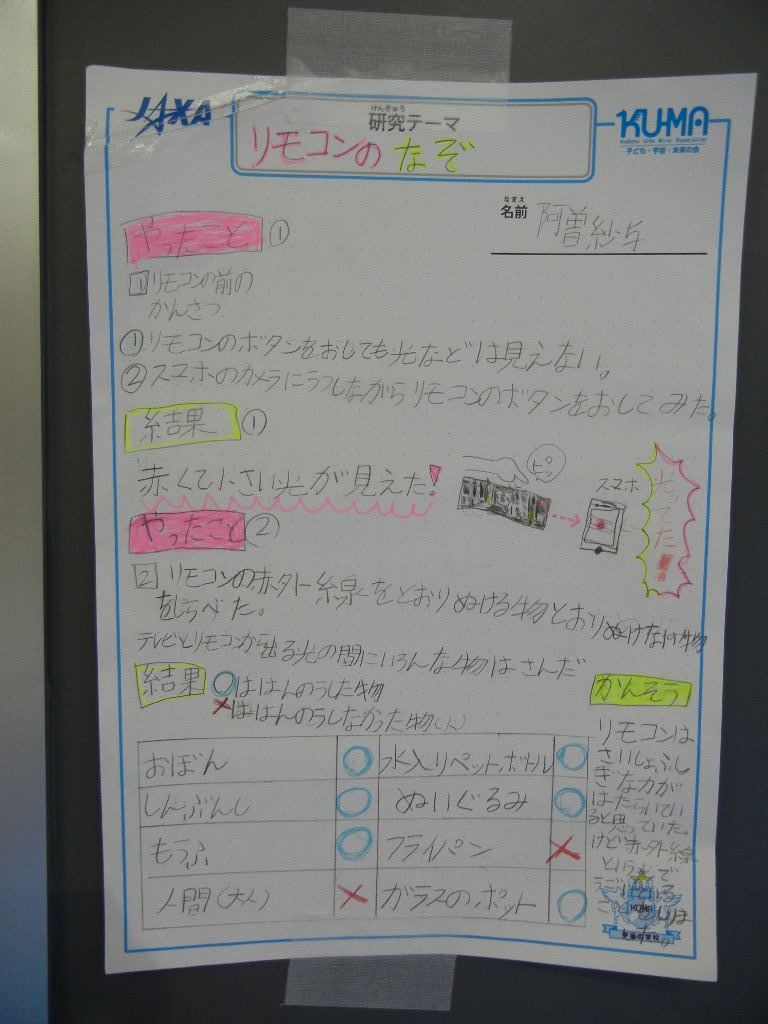 JAXA
けんきゅう
研究テーマ
リモコンの なぞ
KU-MA
子ども・宇宙・未来の会
なまえ
名前 阿曽紗与
やったこと ①
1 リモコンの前の
かんさつ
①リモコンのボタンをおしても光などは見えない。
②スマホのカメラにうつしながらリモコンのボタンをおしてみた。
結果 ①
赤くて小さい光が見えた!
ピッ
スマホ
光ってた
やったこと ②
2 リモコンの赤外線をとおりぬける物とおりぬけない物
をしらべた。
テレビとリモコンから出る光の間にいろんな物はさんだ
結果 ○ははんのうした物
×ははんのうしなかった物
おぼん ○ 水入りペットボトル ○
しんぶんし ○ ぬいぐるみ ○
もうふ ○ フライパン ×
人間(大人) × ガラスのポット ○
かんそう
リモコンは
さいしょふし
ぎな力が
はたらいてい
ると思っていた。
けど赤外線
KUMA
宇宙の学校